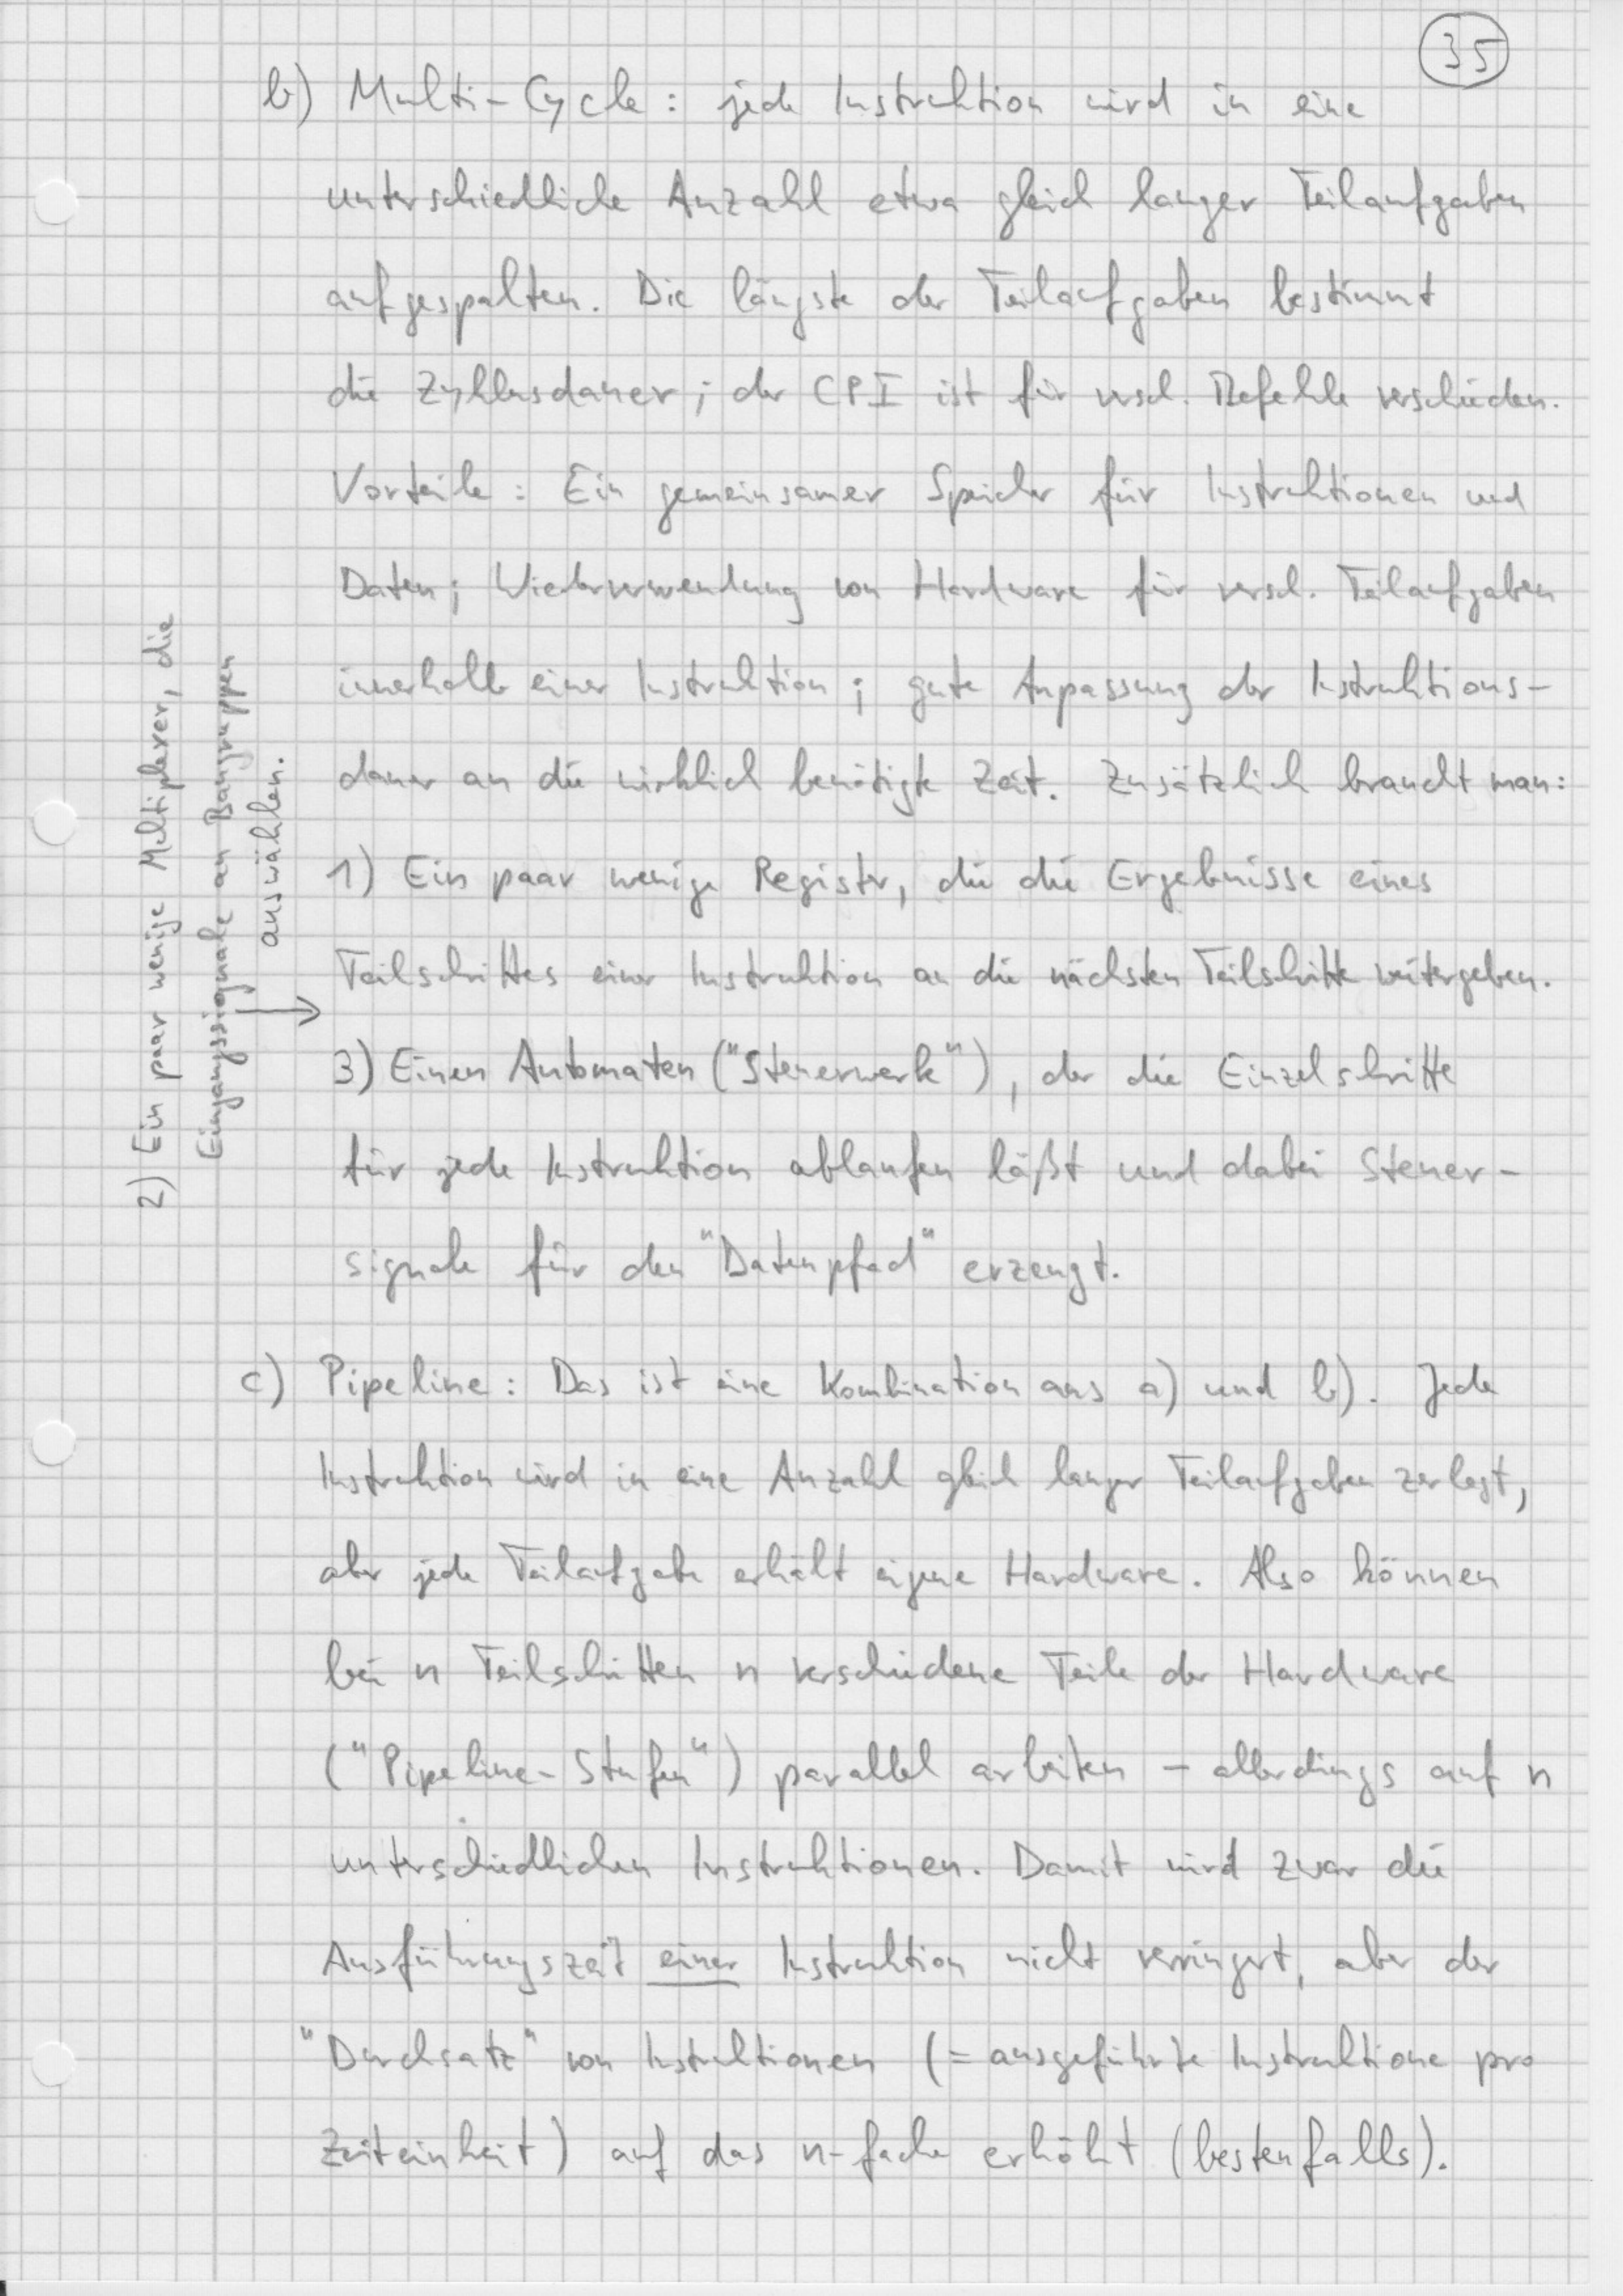 35
b) Multi-Cycle: jede Instruktion wird in eine
unterschiedliche Anzahl etwa gleich langer Teilaufgaben
aufgespalten. Die längste der Teilaufgaben bestimmt
die Zyklusdauer; der CPI ist für versch. Befehle verschieden.
Vorteile: Ein gemeinsamer Speicher für Instruktionen und
Daten; Wiederverwendung von Hardware für versch. Teilaufgaben
innerhalb einer Instruktion; gute Anpassung der Instruktions-
dauer an die wirklich benötigte Zeit. Zusätzlich braucht man:
1) Ein paar wenige Register, die die Ergebnisse eines
Teilschrittes einer Instruktion an die nächsten Teilschritte weitergeben.
2) Ein paar wenige Multiplexer, die
Eingangssignale an Baugruppen
auswählen.
3) Einen Automaten ("Steuerwerk"), der die Einzelschritte
für jede Instruktion ablaufen läßt und dabei Steuer-
signale für den "Datenpfad" erzeugt.
c) Pipeline: Das ist eine Kombination aus a) und b). Jede
Instruktion wird in eine Anzahl gleich langer Teilaufgaben zerlegt,
aber jede Teilaufgabe erhält eigene Hardware. Also können
bei n Teilschritten n verschiedene Teile der Hardware
("Pipeline-Stufen") parallel arbeiten – allerdings auf n
unterschiedlichen Instruktionen. Damit wird zwar die
Ausführungszeit einer Instruktion nicht verringert, aber der
"Durchsatz" von Instruktionen (= ausgeführte Instruktione pro
Zeiteinheit) auf das n-fache erhöht (bestenfalls).